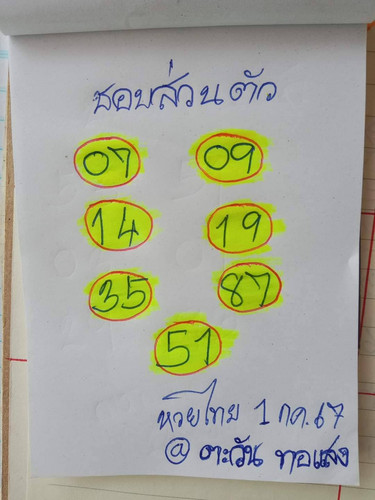 ชอบส่วนตัว
07 09
14 19
35 87
51
หวยไทย 1 กค.67
@ ตะวัน ทอแสง